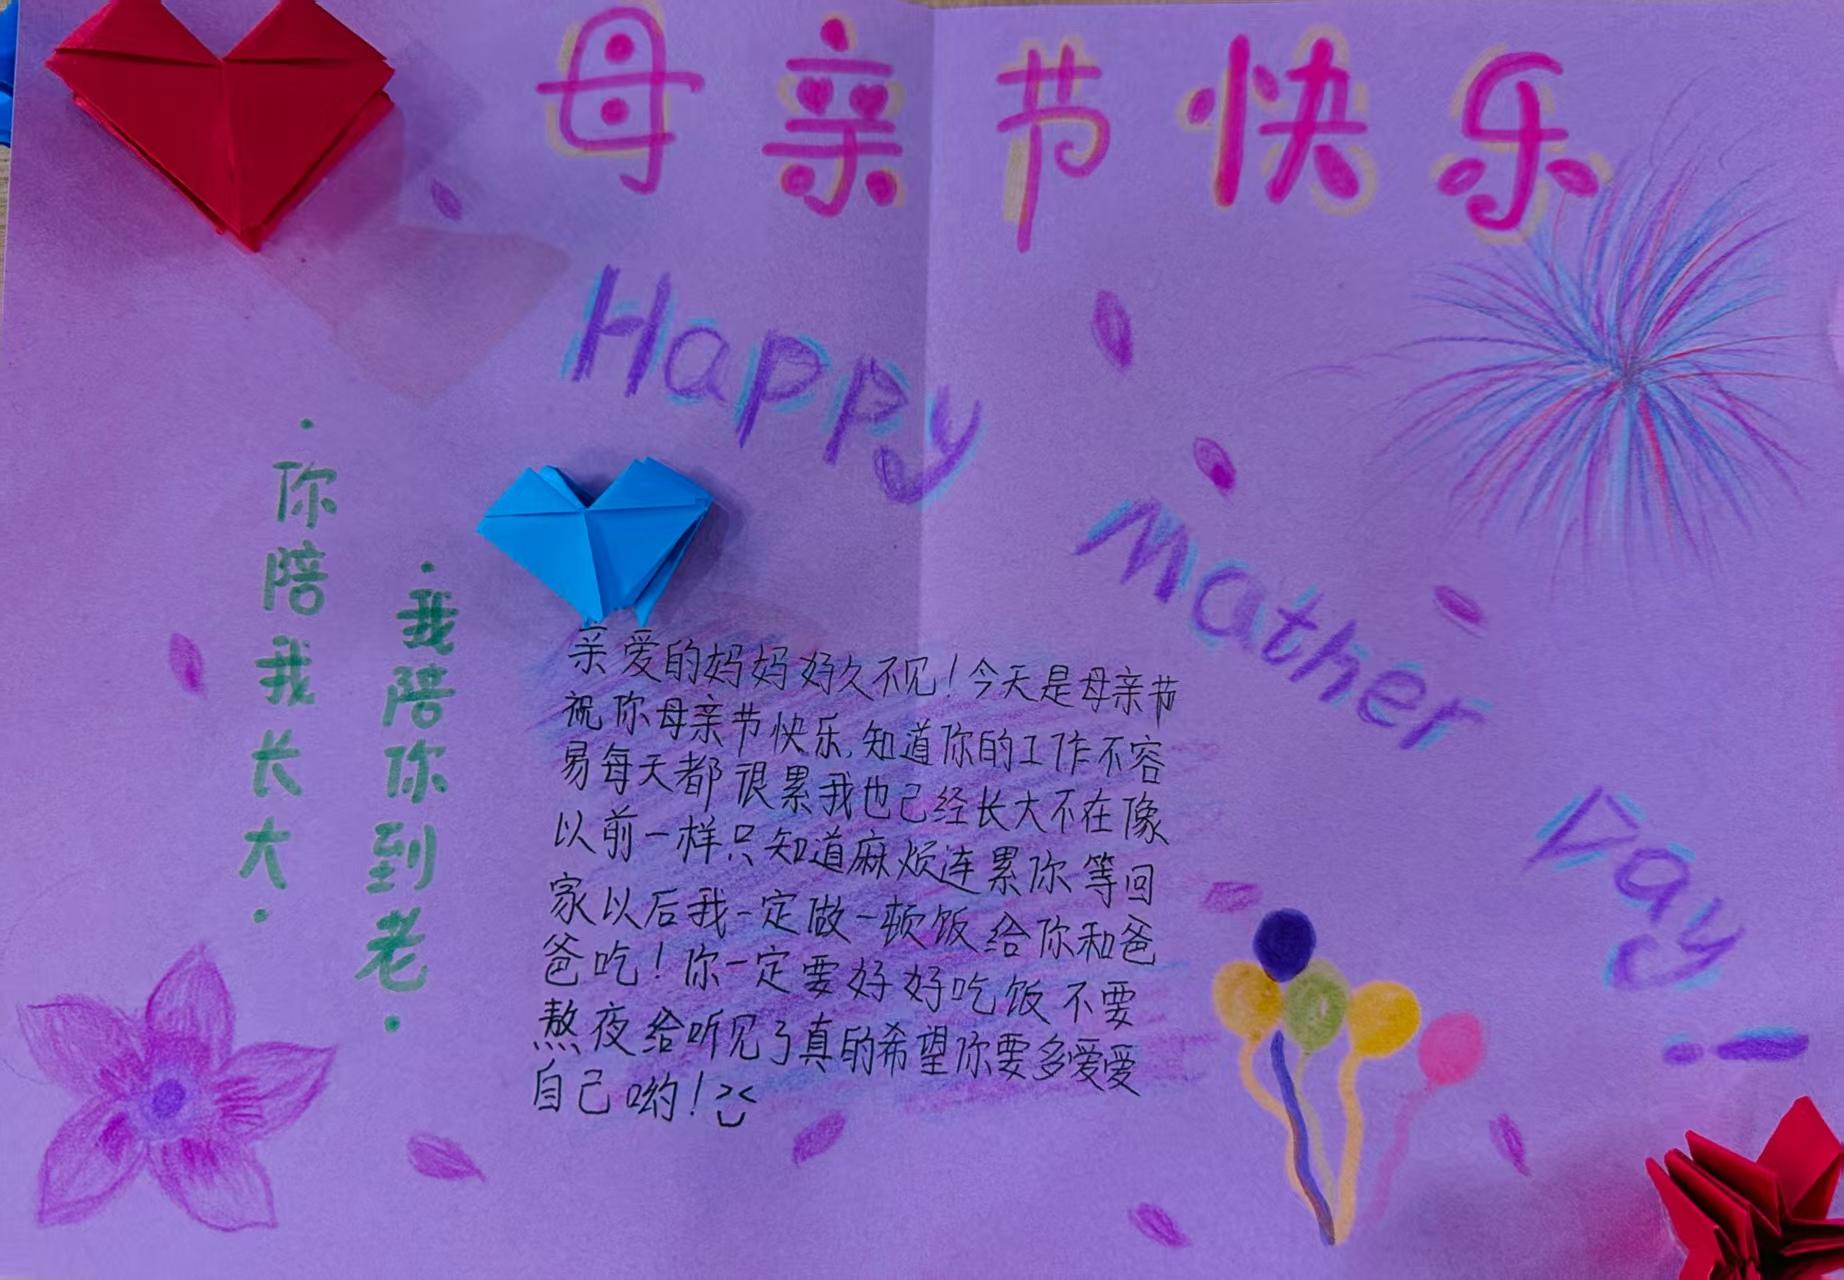 母亲节快乐
Happy
mather
Day
!
·你陪我长大·
·我陪你到老·
亲爱的妈妈好久不见!今天是母亲节
祝你母亲节快乐,知道你的工作不容
易每天都很累我也已经长大不在像
以前一样只知道麻烦连累你等回
家以后我一定做一顿饭给你和爸
爸吃!你一定要好好吃饭不要
熬夜给听见了真的希望你要多爱爱
自己哟!